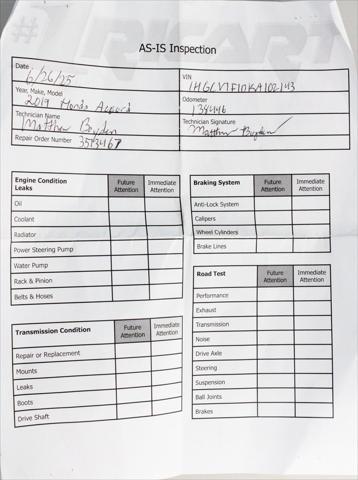 AS-IS Inspection
Date 6/26/25
VIN
Year, Make, Model 2019 Honda Accord
Odometer 138446
Technician Name Matthew Boyden
Technician Signature Matthew Boyden
Repair Order Number 3573467
Engine Condition Future Attention Immediate Attention
Leaks
Oil
Coolant
Radiator
Power Steering Pump
Water Pump
Rack & Pinion
Belts & Hoses
Transmission Condition Future Attention Immediate Attention
Repair or Replacement
Mounts
Leaks
Boots
Drive Shaft
Braking System Future Attention Immediate Attention
Anti-Lock System
Calipers
Wheel Cylinders
Brake Lines
Road Test Future Attention Immediate Attention
Performance
Exhaust
Transmission
Noise
Drive Axle
Steering
Suspension
Ball Joints
Brakes